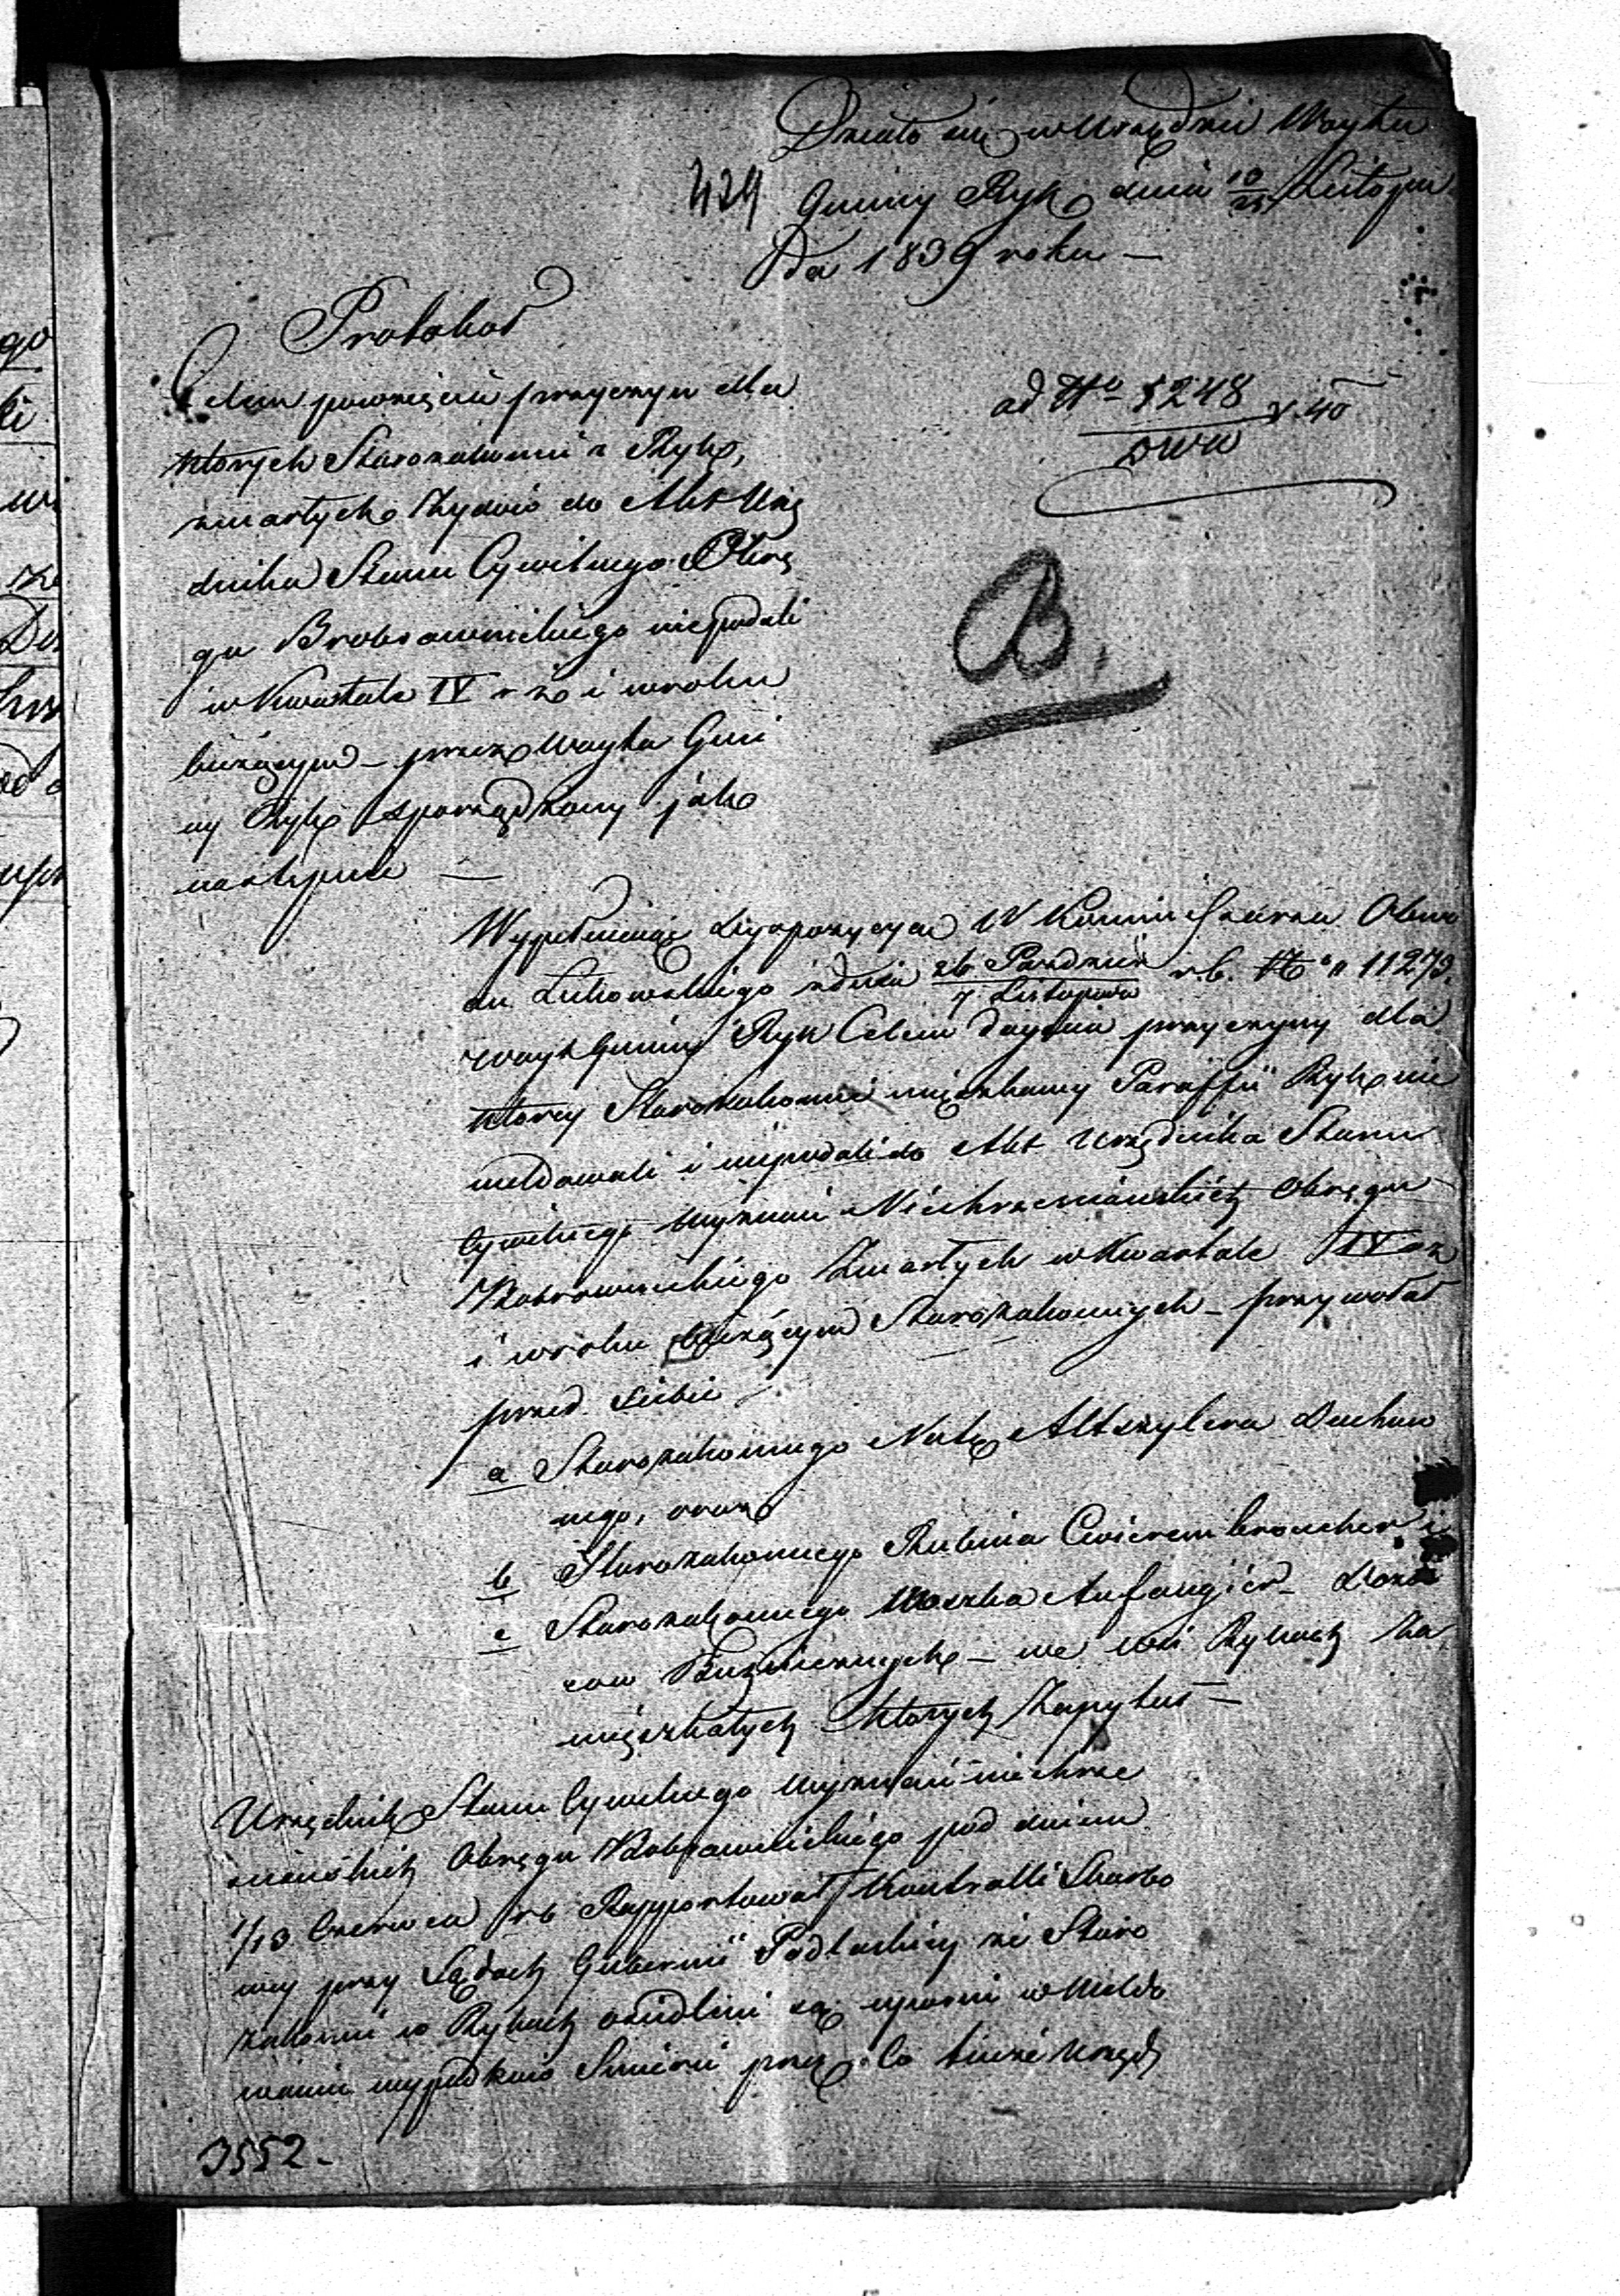 Działo się w Urzędzie Woyta
424 Gminy Ryk dnia 10/22 Listopa
da 1839 roku —
Protokół
Celem powzięcia przyczyn dla
których Starozakonni z Ryk,
zmartych Żydów do Akt Urzę
dnika Stanu Cywilnego Okrę
gu Brobrownickiego niepodali
w Kwartale IV r z i w roku
bieżącym — przez Woyta Gmi
ny Ryk sporządzony jak
następuie —
ad No 5248
B.
Wypełniaiąc dyspozycyą W Kommissarza Obwo
du Łukowskiego z dnia 26 Paździer / 7 Listopada r.b. No 11273
Woyt Gminy Ryk Celem doyścia przyczyny dla
którey Starozakonni mięszkańcy Paraffii Ryk nie
meldowali i niepodali do Akt Urzędnika Stanu
Cywilnego Wyznań Niechrześciańskich Okręgu
Bobrownickiego Zmarłych w Kwartale IV r z
i w roku bieżącym Starozakonnych — przywołał
przed siebie
a Starozakonnego Notę Altszylera Duchow
nego, oraz
b Starozakonnego Rubina Cwierembroucher i
c Starozakonnego Moszka Aufangier — Dozo
rów Bużnicznych — we wsi Rykach Za
mięszkałych których Zapytał —
Urzędnik Stanu Cywilnego Wyznań niechrze
ściańskich Okręgu Bobrownickiego pod dniem
1/13 Czerwca r b Rapportował Kontrolli Skarbo
wey przy Sądach Gubernii Podlaskiey że Staro
zakonni w Rykach osiedleni są uporni w Meldo
waniu wypadków Smierci przez Co tuteż Urzęd
3552.